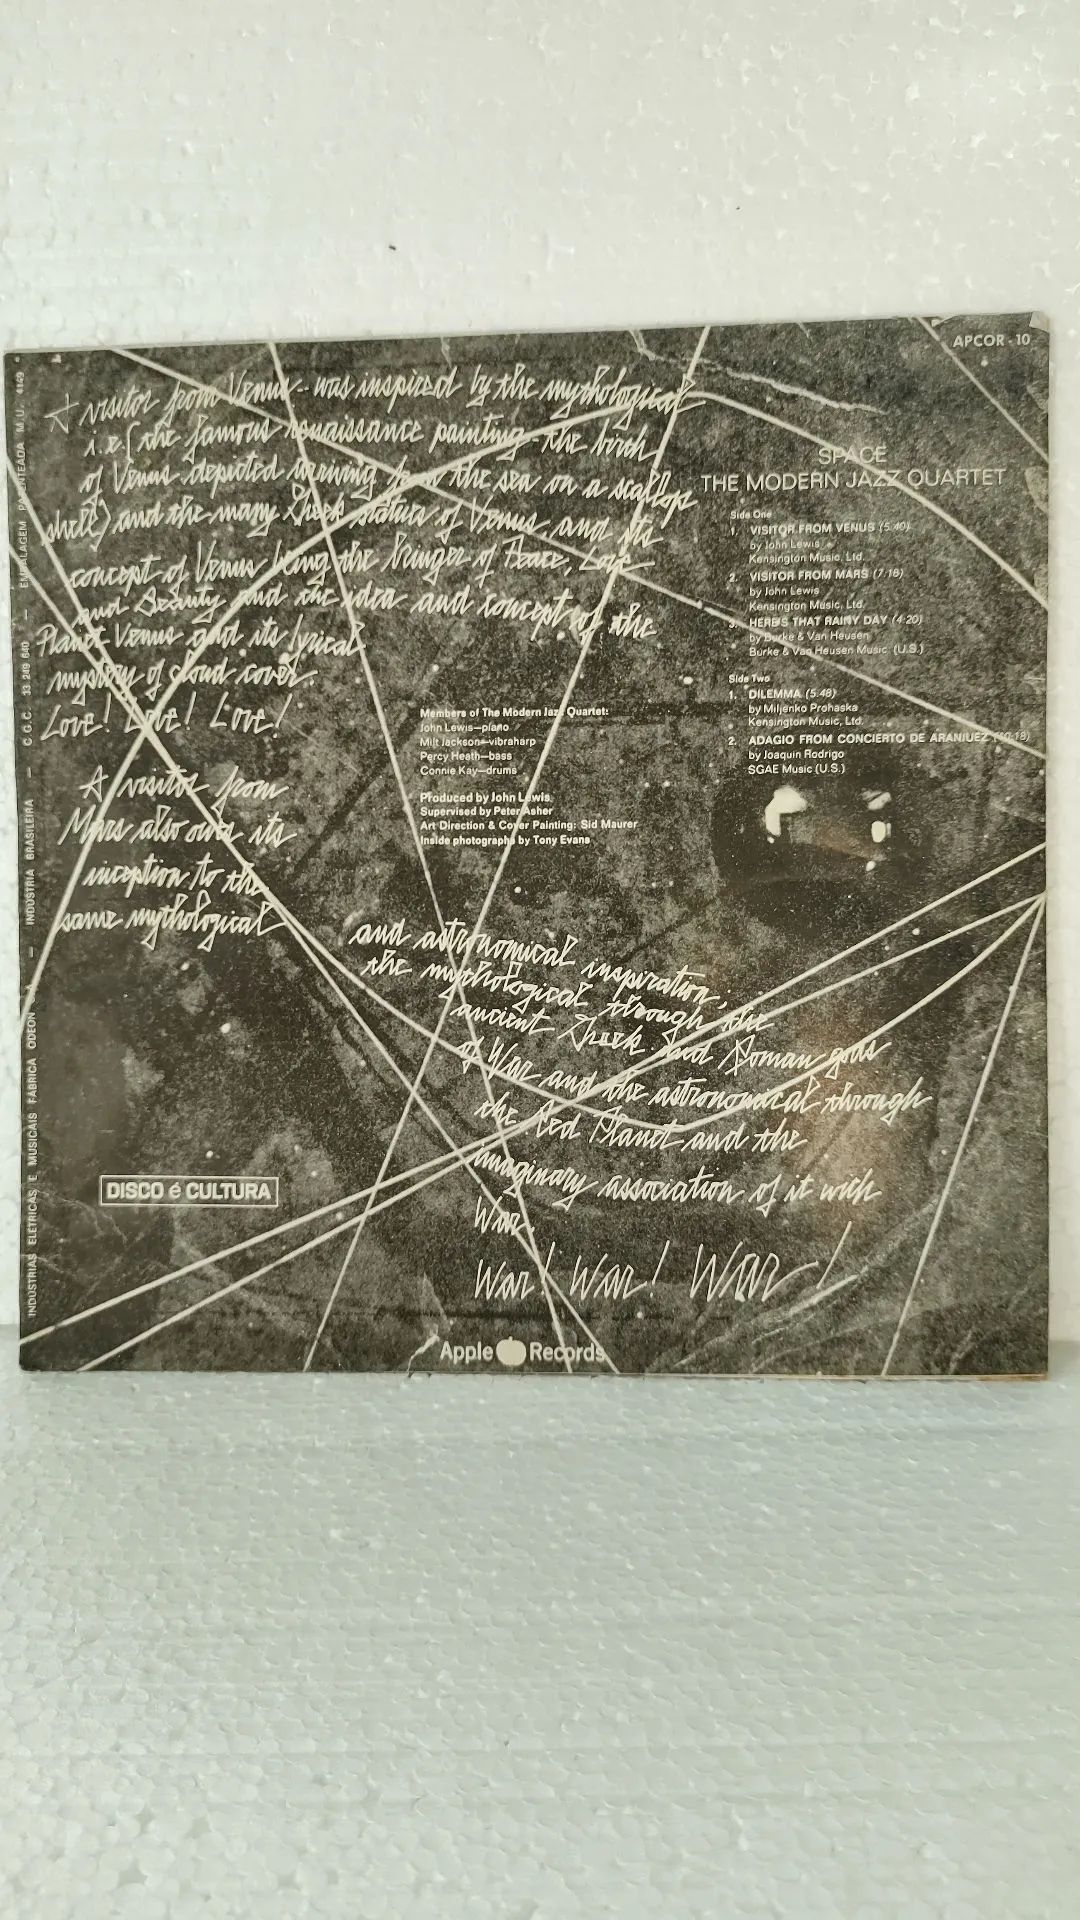 APCOR - 10
A visitor from Venus - was inspired by the mythological
i.e. (the famous renaissance painting - the birth
of Venus depicted arising from the sea on a scallop
shell) and the many Greek statues of Venus, and its
concept of Venus being the bringer of Peace, Love
and Beauty and the idea and concept of the
Planet Venus and its lyrical
mystery of cloud cover.
Love! Love! Love!
A visitor from
Mars also owes its
inception to the
same mythological
and astronomical inspiration;
the mythological through the
ancient Greek and Roman gods
of War and the astronomical through
the Red Planet and the
imaginary association of it with
War.
War! War! War!
SPACE
THE MODERN JAZZ QUARTET
Side One
1. VISITOR FROM VENUS (5:40)
by John Lewis
Kensington Music, Ltd.
2. VISITOR FROM MARS (7:18)
by John Lewis
Kensington Music, Ltd.
3. HERE'S THAT RAINY DAY (4:20)
by Burke & Van Heusen
Burke & Van Heusen Music (U.S.)
Side Two
1. DILEMMA (5:48)
by Miljenko Prohaska
Kensington Music, Ltd.
2. ADAGIO FROM CONCIERTO DE ARANJUEZ (10:18)
by Joaquin Rodrigo
SGAE Music (U.S.)
Members of The Modern Jazz Quartet:
John Lewis—piano
Milt Jackson—vibraharp
Percy Heath—bass
Connie Kay—drums
Produced by John Lewis
Supervised by Peter Asher
Art Direction & Cover Painting: Sid Maurer
Inside photographs by Tony Evans
DISCO é CULTURA
Apple Records
INDUSTRIAS ELETRICAS E MUSICAIS FABRICA ODEON — INDÚSTRIA BRASILEIRA — C.G.C. 33 249 640 — EMBALAGEM PATENTEADA M.U. 4149